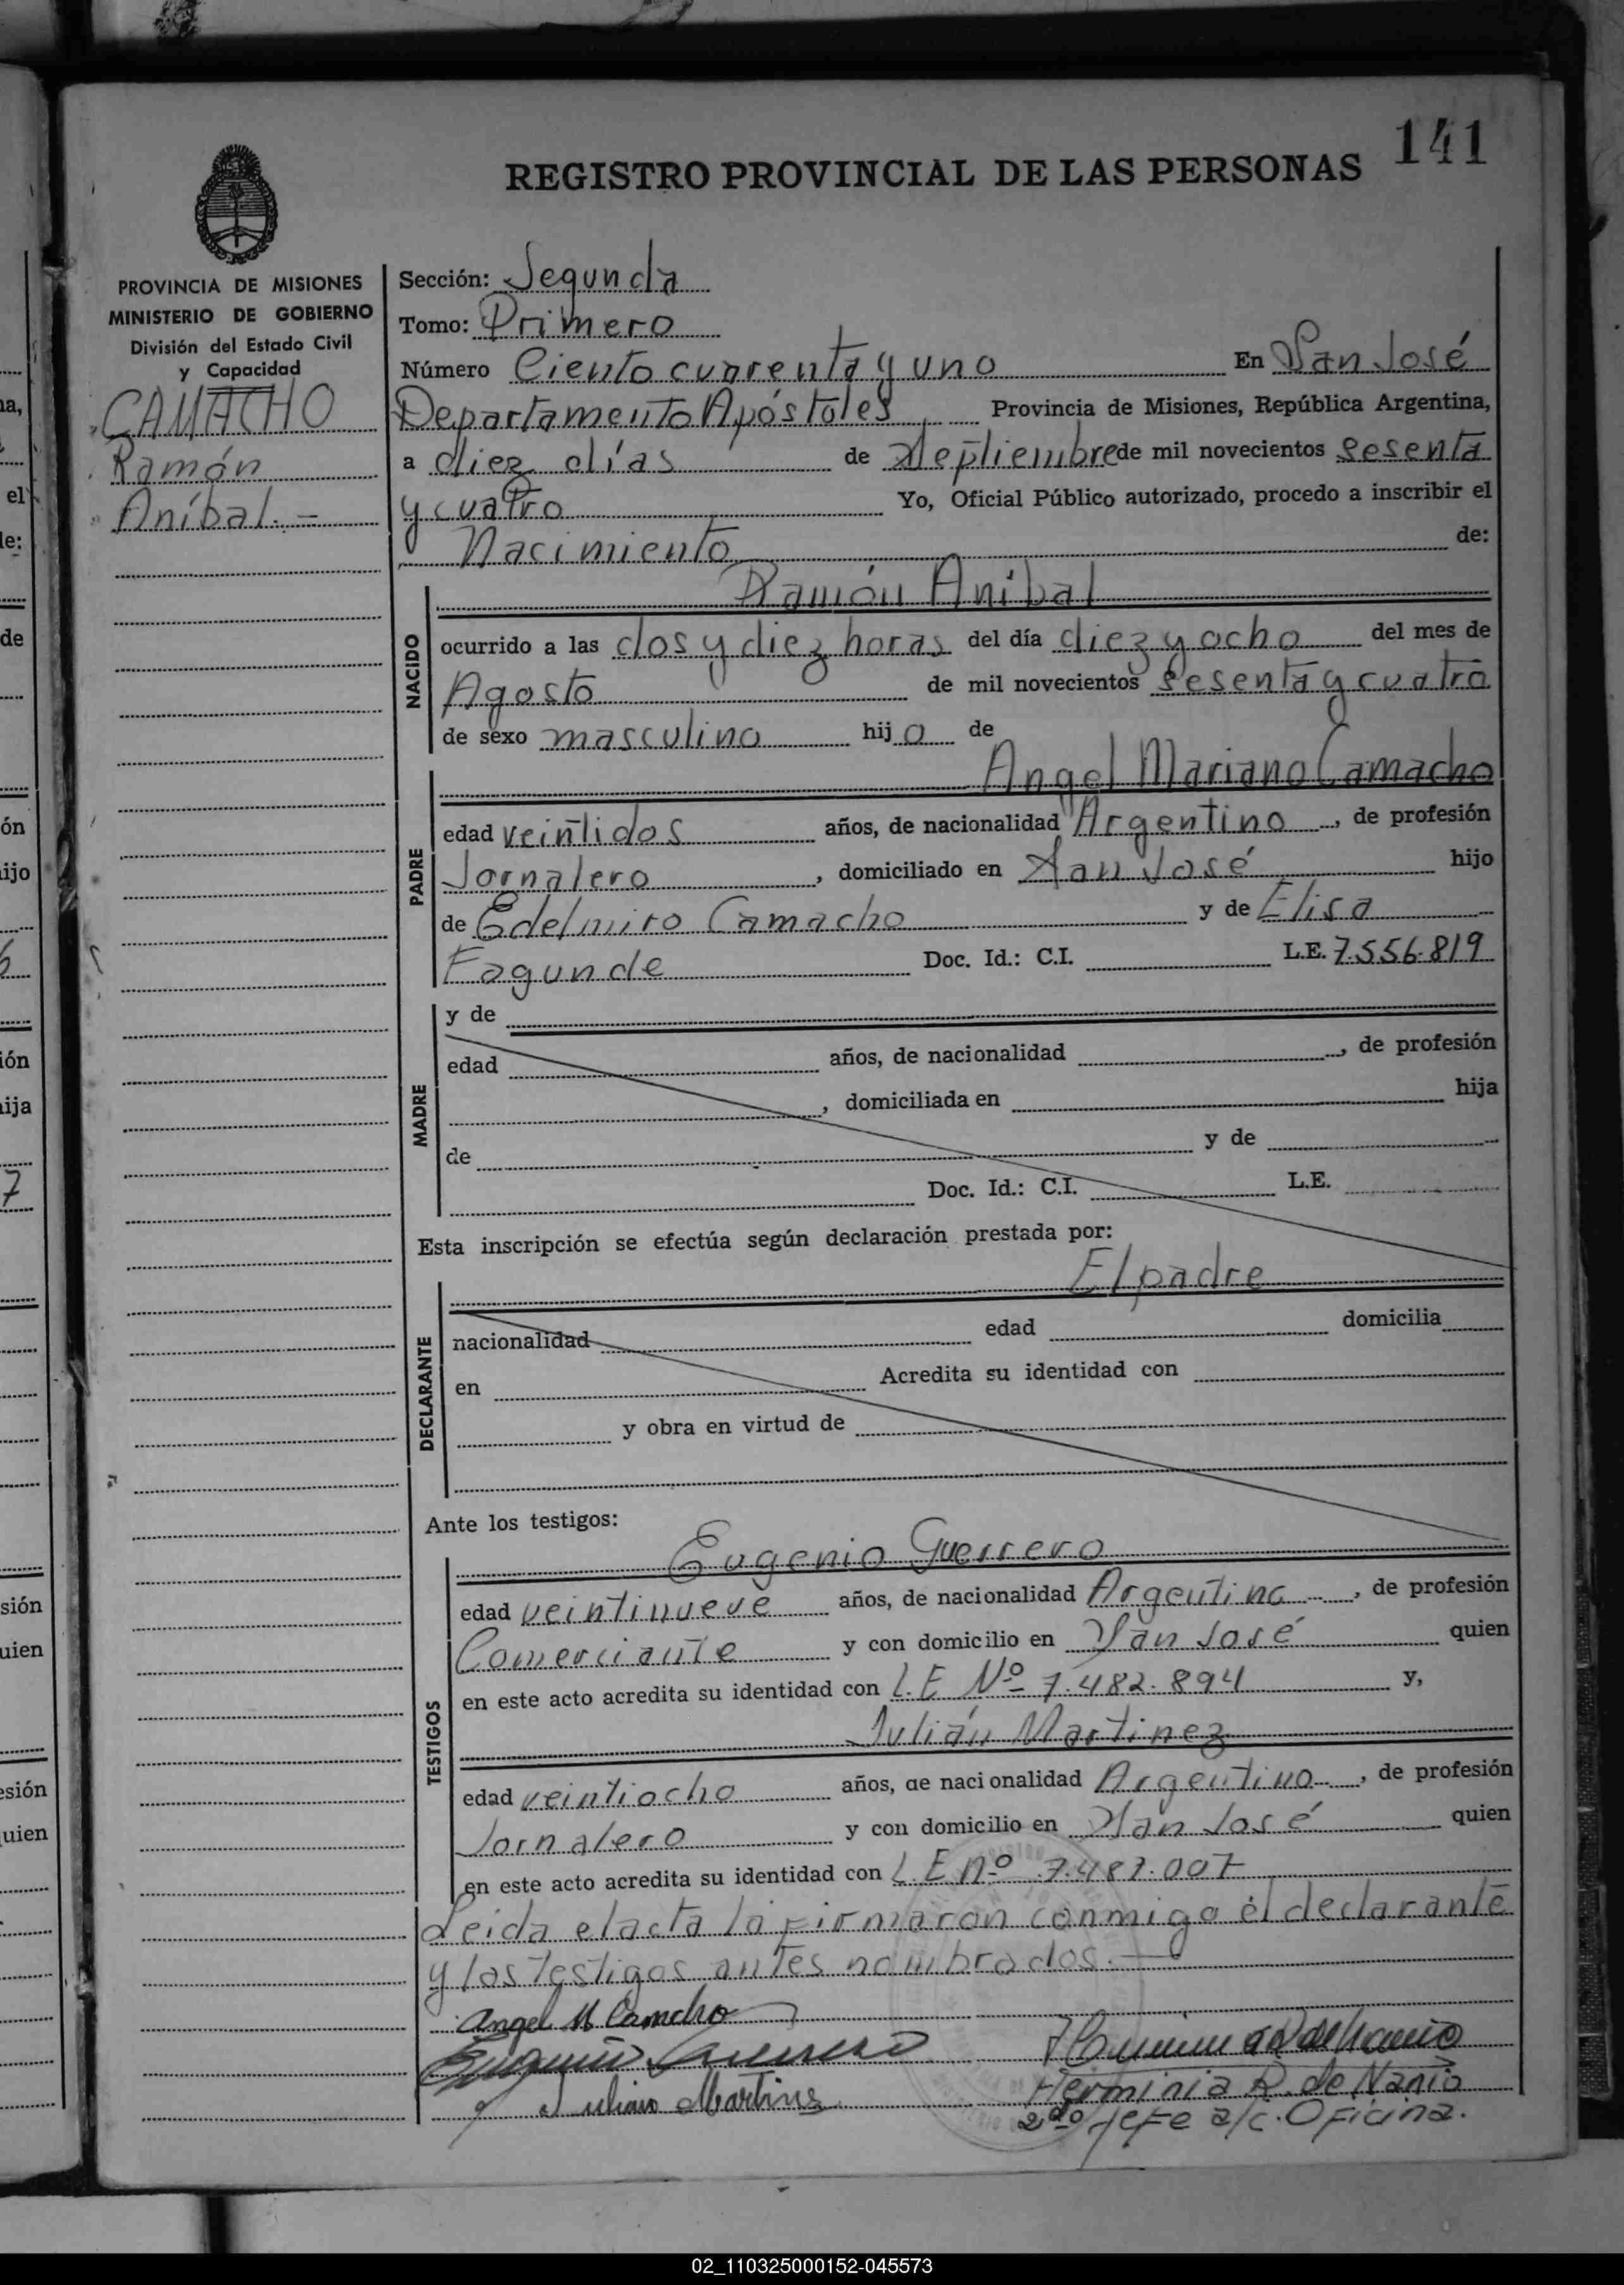 141
REGISTRO PROVINCIAL DE LAS PERSONAS
PROVINCIA DE MISIONES
MINISTERIO DE GOBIERNO
División del Estado Civil
y Capacidad
CAMACHO
Ramón
Aníbal.-
Sección: Segunda
Tomo: Primero
Número Ciento cuarenta y uno En San José
Departamento Apóstoles Provincia de Misiones, República Argentina,
a diez días de Septiembre de mil novecientos sesenta
y cuatro Yo, Oficial Público autorizado, procedo a inscribir el
Nacimiento de:
NACIDO
Ramón Aníbal
ocurrido a las dos y diez horas del día diez y ocho del mes de
Agosto de mil novecientos sesenta y cuatro
de sexo masculino hijo de
PADRE
Angel Mariano Camacho
edad veintidos años, de nacionalidad Argentino, de profesión
Jornalero, domiciliado en San José hijo
de Edelmiro Camacho y de Elisa
Fagunde Doc. Id.: C.I. L.E. 7.556.819
MADRE
y de
edad años, de nacionalidad , de profesión
, domiciliada en hija
de y de
Doc. Id.: C.I. L.E.
Esta inscripción se efectúa según declaración prestada por:
El padre
DECLARANTE
nacionalidad edad domicilia
en Acredita su identidad con
y obra en virtud de
Ante los testigos:
Eugenio Guerrero
TESTIGOS
edad veintinueve años, de nacionalidad Argentino, de profesión
Comerciante y con domicilio en San José quien
en este acto acredita su identidad con L.E Nº 7.482.894 y,
Julián Martinez
edad veintiocho años, de nacionalidad Argentino, de profesión
Jornalero y con domicilio en San José quien
en este acto acredita su identidad con L.E nº 7.487.007
Leida el acta la firmaron conmigo el declarante
y los testigos antes nombrados.-
Angel M Camcho
Eugenio Guerrero
Julian Martines
Herminia R. de Nanio
2do Jefe a/c. Oficina.
02_110325000152-045573